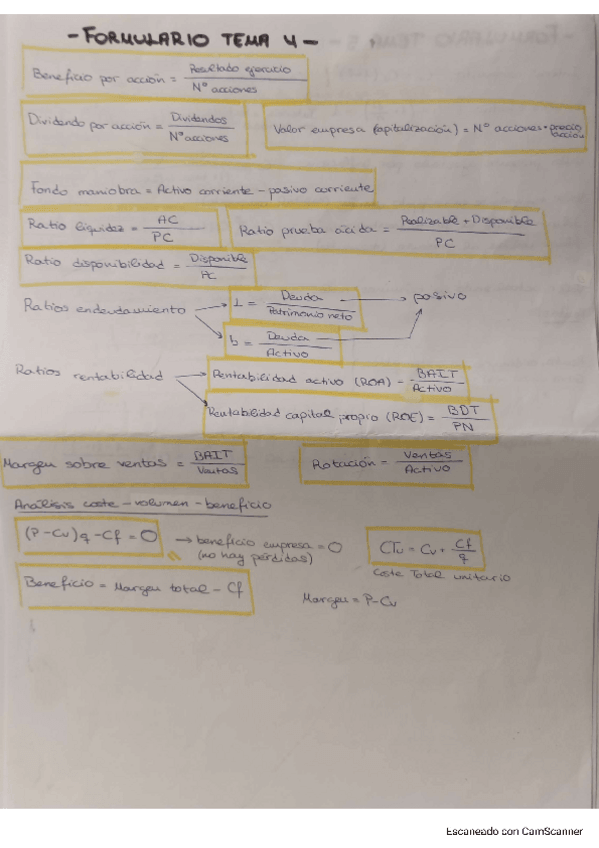 - FORMULARIO TEMA 4 -
Beneficio por acción = Resultado ejercicio / Nº acciones
Dividendo por acción = Dividendos / Nº acciones
Valor empresa (capitalización) = Nº acciones · precio acción
Fondo maniobra = Activo corriente - pasivo corriente
Ratio liquidez = AC / PC
Ratio prueba ácida = Realizable + Disponible / PC
Ratio disponibilidad = Disponible / PC
Ratios endeudamiento → L = Deuda / Patrimonio neto → pasivo
→ b = Deuda / Activo
Ratios rentabilidad → Rentabilidad activo (ROA) - BAIT / Activo
Rentabilidad capital propio (ROE) = BDT / PN
Margen sobre ventas = BAIT / Ventas
Rotación = Ventas / Activo
Análisis coste - volumen - beneficio
(P - Cv) q - Cf = 0 → beneficio empresa = 0
(no hay pérdidas)
CTu = Cv + Cf / q
Coste Total unitario
Beneficio = Margen total - Cf
Margen = P - Cv
Escaneado con CamScanner